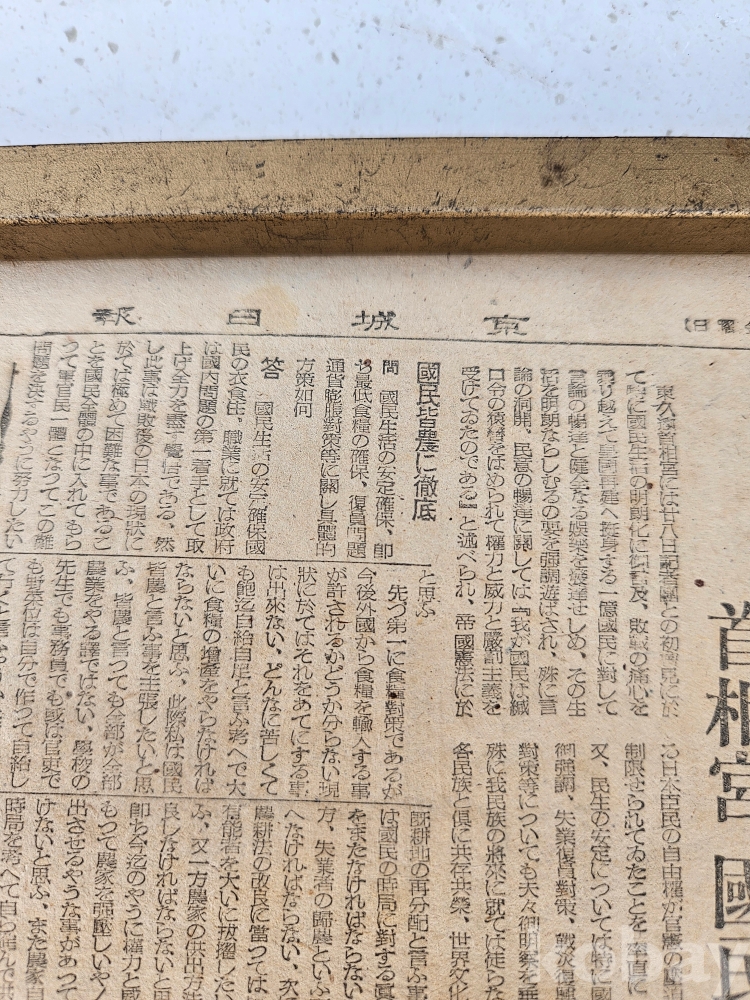 京城日報
首相宮 國民
東久邇首相宮には廿八日記者團との初會見に於
て特に國民生活の明朗化に御言及、敗戰の痛心を
乘り越えて皇國再建へ挺身する一億國民に對して
言論の暢達と健全なる娯樂を發達せしめ、その生
活を明朗ならしむるの要を強調遊ばされ、殊に言
論の洞開、民意の暢達に關しては『我が國民は緘
口令の猿轡をはめられて權力と威力と嚴罰主義を
受けてゐたのである』と述べられ、帝國憲法に於
る日本臣民の自由權が官憲の
制限せられてゐたことを率直に
又、民生の安定については特に國
御強調、失業復員對策、戰災復興
對策等についても夫々御明答を垂
殊に我民族の將來に就ては徒らな
各民族と倶に共存共榮、世界文化
國民皆農に徹底
問 國民生活の安定確保、即
ち最低食糧の確保、復員問題
通貨膨脹對策等に關し具體的
方策如何
答 國民生活の安定確保國
民の衣食住、職業に就ては政府
は國内問題の第一着手として取
上げ全力を盡す覺悟である、然
し此事は戰敗後の日本の現狀に
於ては極めて困難な事であるこ
とを國民全體の中に入れてもら
つて軍官民一體となつてこの難
問題を決するやうに努力したい
と思ふ
先づ第一に食糧對策であるが
今後外國から食糧を輸入する事
が許されるかどうか分らない現
狀に於てはそれをあてにする事
は出來ない、どんなに苦しくて
も飽迄自給自足と言ふ考へで大
いに食糧の増産をやらなければ
ならないと思ふ、此際私は國民
皆農と言ふ事を主張したいと思
ふ、皆農と言つても全部が全部
農業をやる譯ではない、學校の
先生でも事務員でも或は官吏で
も野菜位は自分で作つて自給し
既耕地の再分配と言ふ事
は國民の時局に對する眞
をまたなければならない
方、失業者の歸農といふ
へなければならない、次
農耕法の改良に當つては
有能者を大いに拔擢した
ふ、又一方農家の供出方法
良しなければならないと思
即ち今迄のやうに權力と威
もつて農家を強壓しいや
出させるやうな事があつて
けないと思ふ、また農家自
時局を考へて自ら進んで供